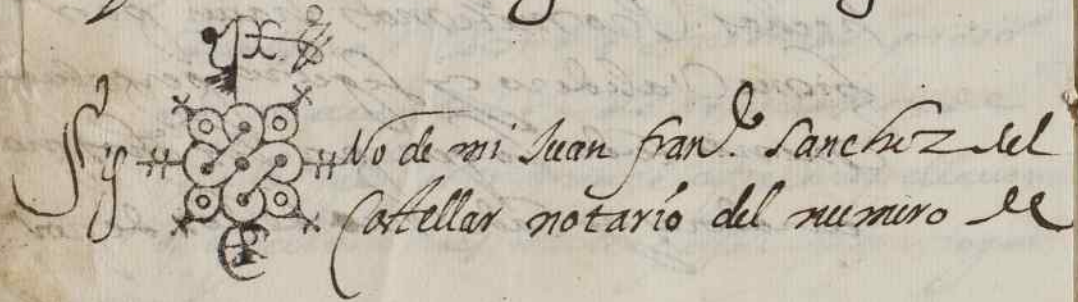 Sig No de mi Juan fran.co Sanchez del
Castellar notario del numero de